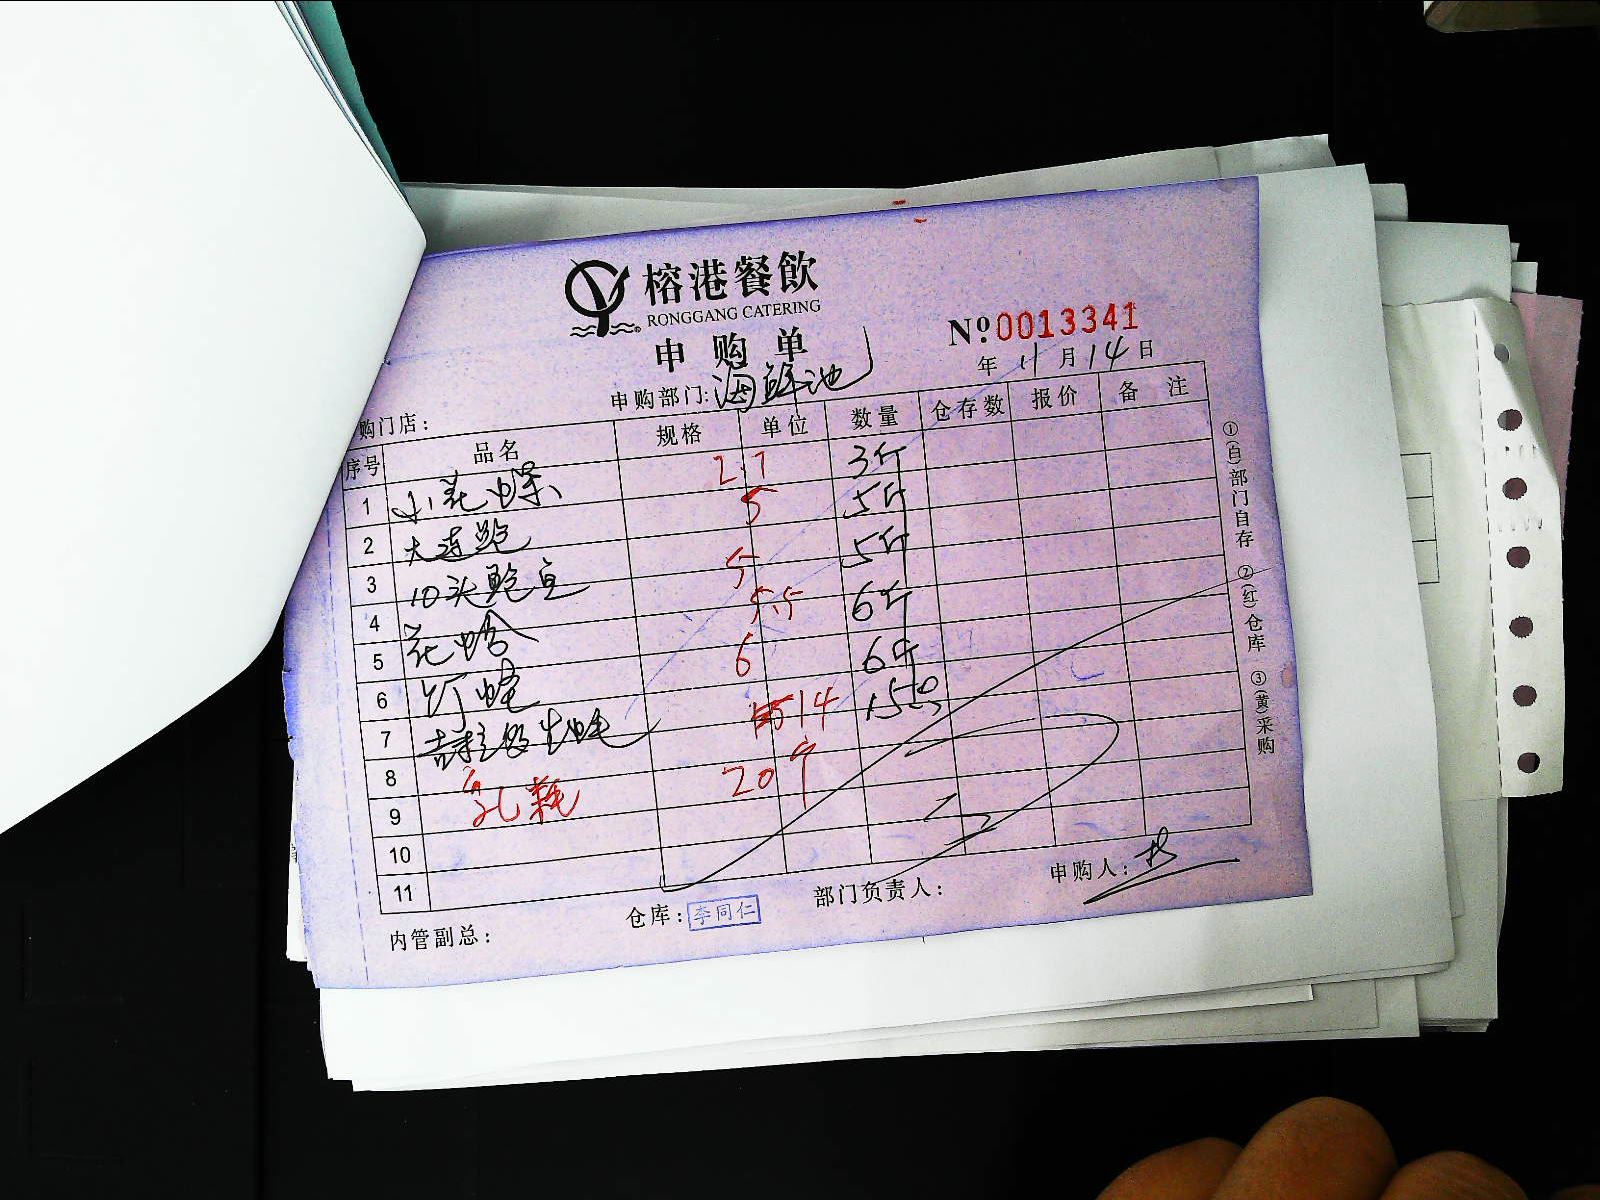 榕港餐飲
RONGGANG CATERING
申购单
№:0013341
年 11 月 14 日
购门店: 申购部门:海鲜池
序号 品名 规格 单位 数量 仓存数 报价 备注
1 小花螺 2.7 3斤
2 大连鲍 5 5斤
3 10头鲍鱼 5 5斤
4 花蛤 5.5 6斤
5 6 6斤
6 14
7
8 20个
9
10
11
内管副总: 仓库:李同仁 部门负责人: 申购人:
①(白)部门自存 ②(红)仓库 ③(黄)采购